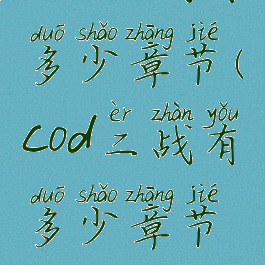 duō shǎo zhāng jié
多少章节(
èr zhàn yǒu
cod二战有
duō shǎo zhāng jié
多少章节